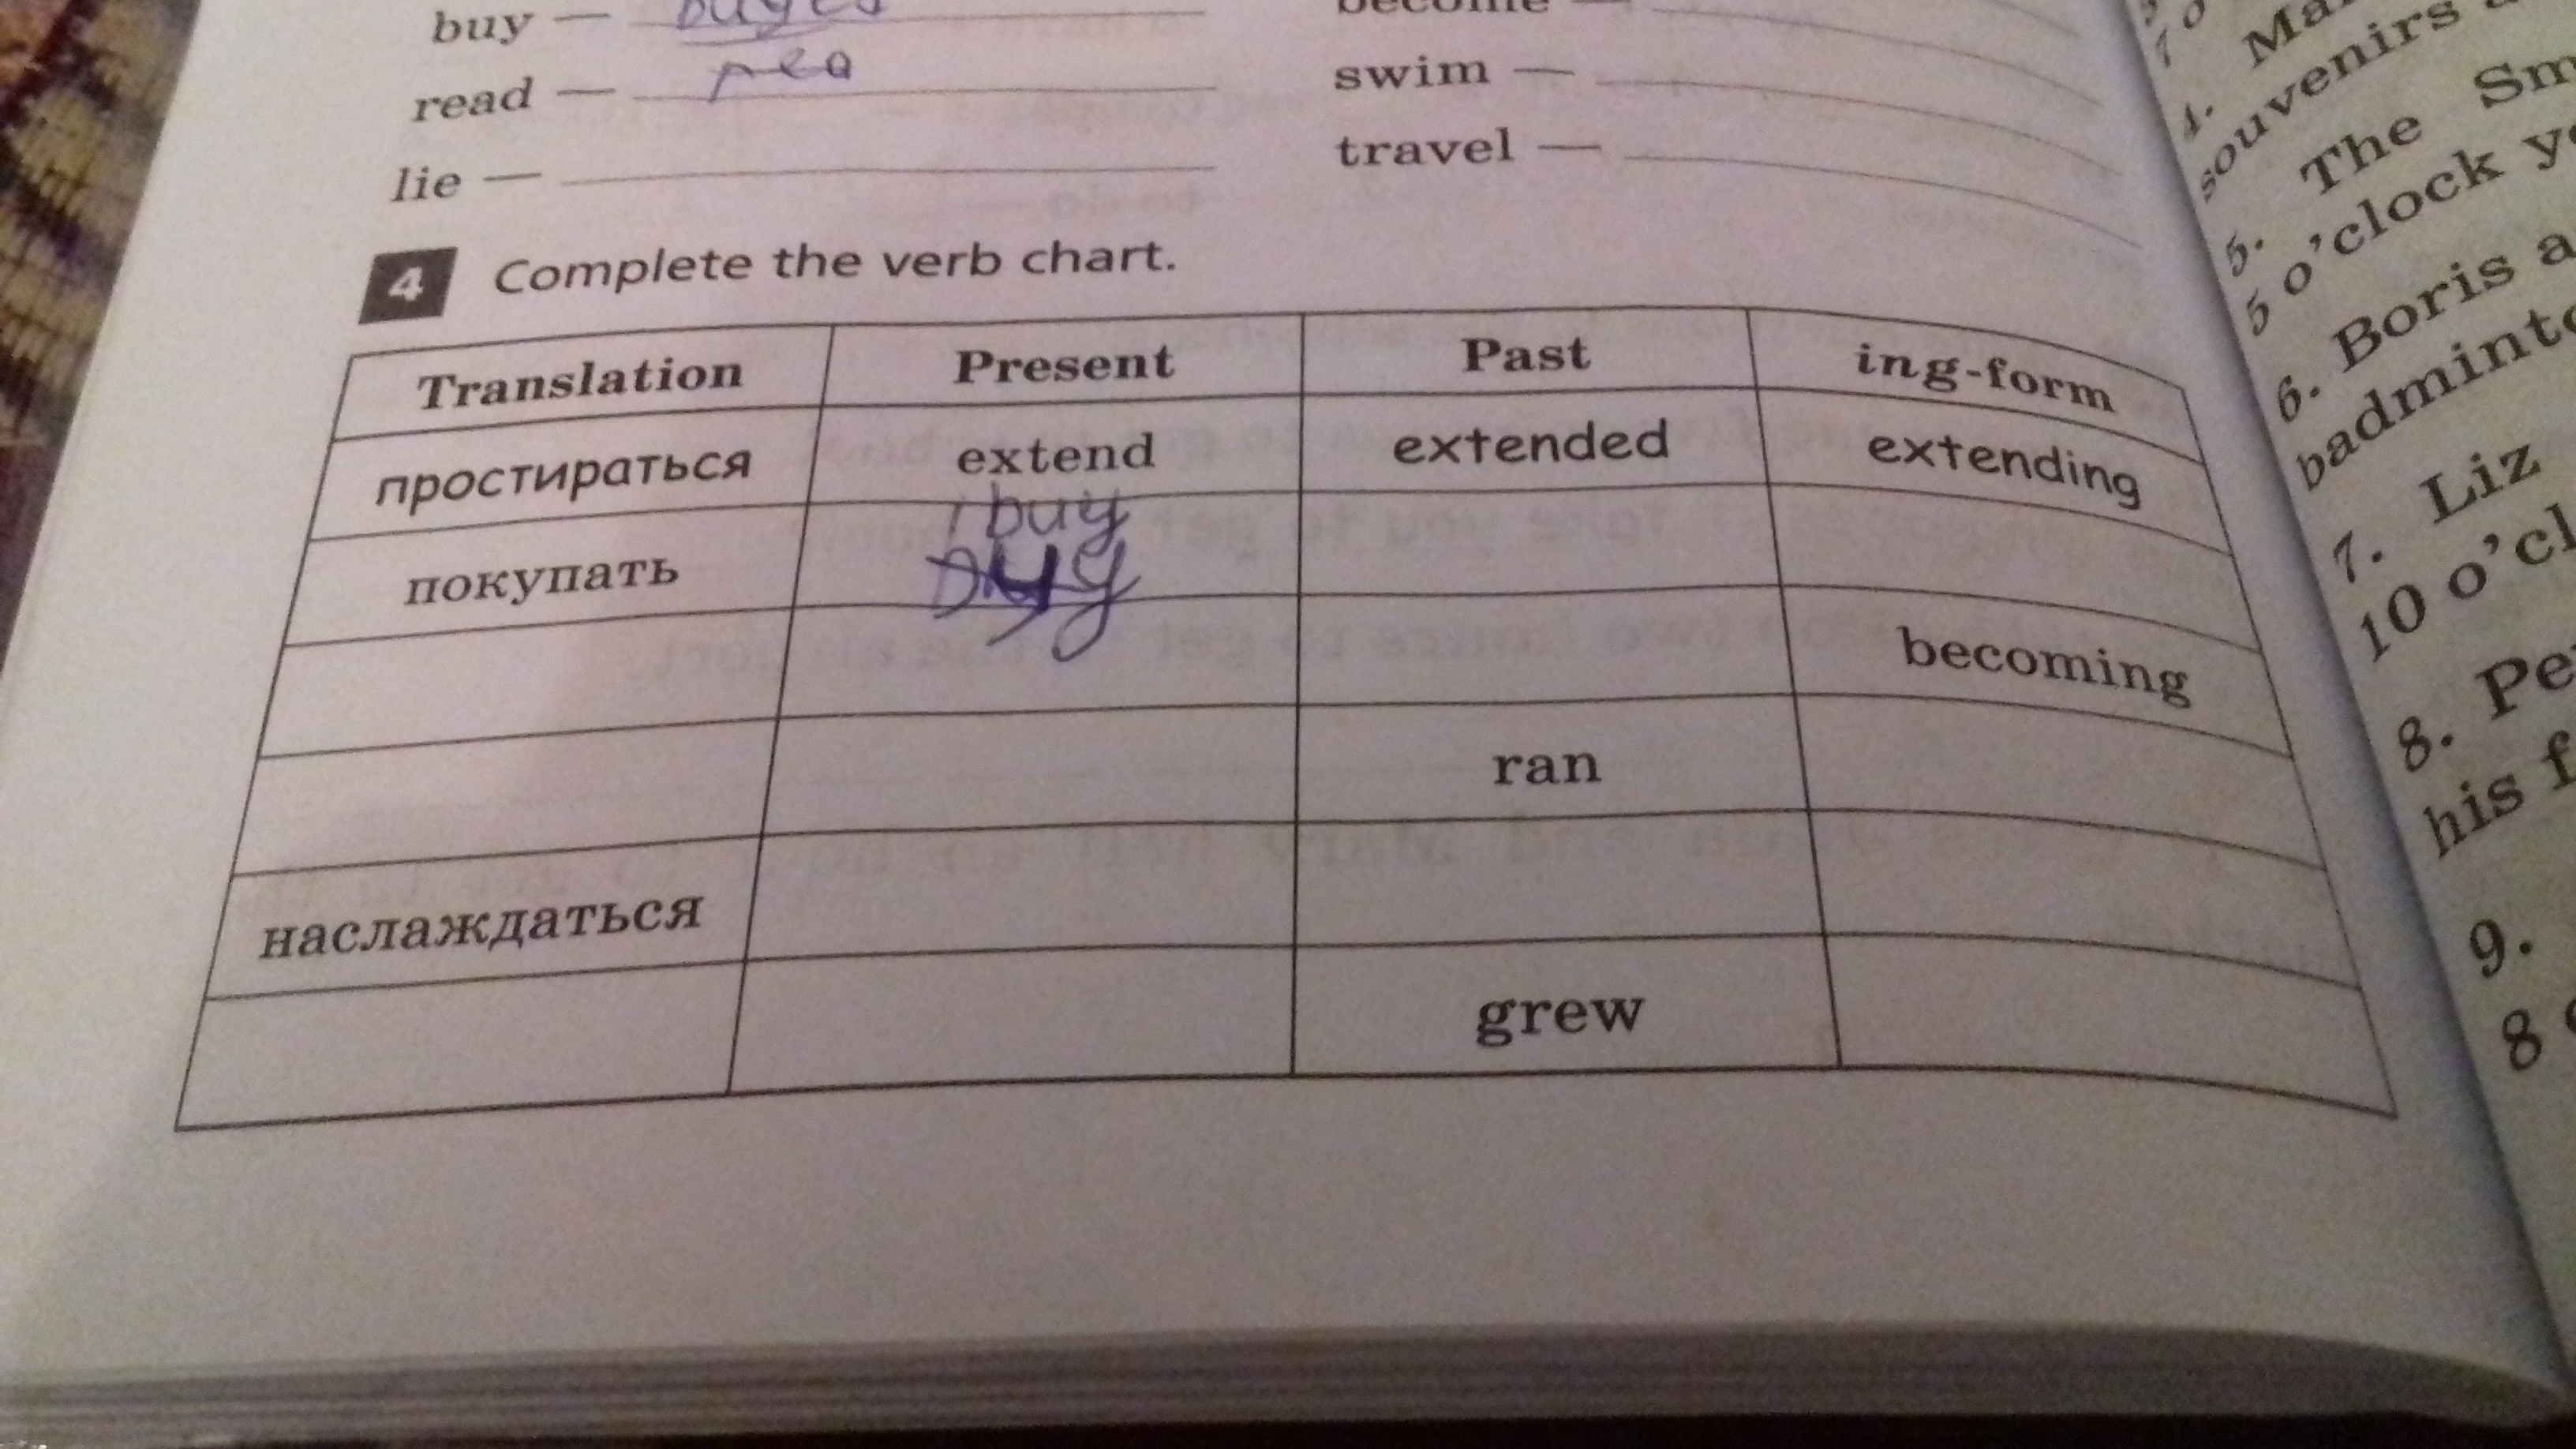 buy —
read — rea
lie —
become —
swim —
travel —
4 Complete the verb chart.
Translation Present Past ing-form
простираться extend extended extending
покупать buy
becoming
ran
наслаждаться
grew
souvenirs
5. The Sm
5 o'clock
6. Boris a
badminto
7. Liz
10 o'cl
8. Pe
his f
9.
8